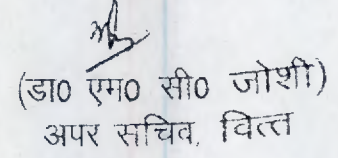 (डा० एम० सी० जोशी)
अपर सचिव, वित्त